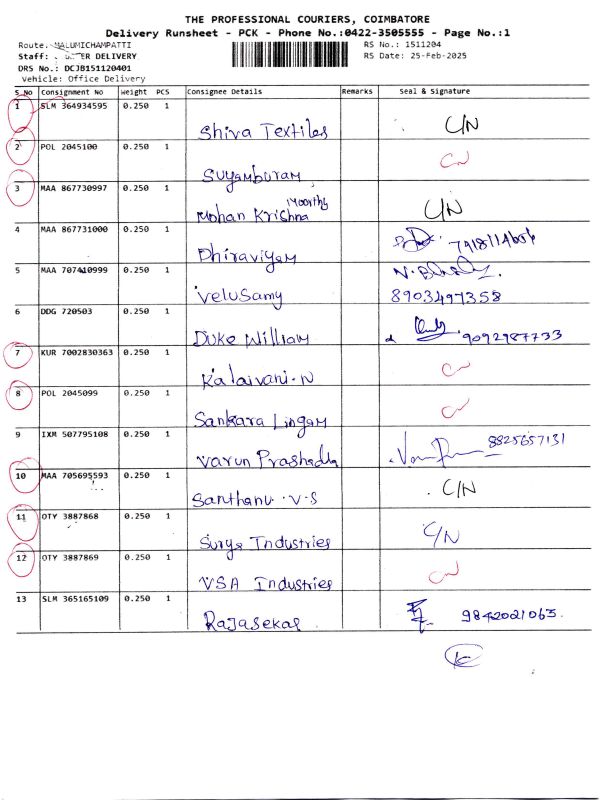 THE PROFESSIONAL COURIERS, COIMBATORE
Delivery Runsheet - PCK - Phone No.:0422-3505555 - Page No.:1
Route: MALUMICHAMPATTI RS No.: 1511204
Staff: DELIVERY RS Date: 25-Feb-2025
DRS No.: DCJB151120401
Vehicle: Office Delivery
S No Consignment No Weight PCS Consignee Details Remarks Seal & Signature
1 SLM 364934595 0.250 1
Shiva Textiles C/N
2 POL 2045100 0.250 1 CN
Suyamburam
3 MAA 867730997 0.250 1
Mohan Krishna Moorthy C/N
4 MAA 867731000 0.250 1
Dhiraviyam
5 MAA 707410999 0.250 1
Velusamy 8903497358
6 DDG 720503 0.250 1
Duke William 9092987733
7 KUR 7002830363 0.250 1 CN
Kalaivani.N
8 POL 2045099 0.250 1 CN
Sankara Lingam
9 IXM 507795108 0.250 1 8825657131
Varun
10 MAA 705695593 0.250 1 C/N
Santhanu.V.S
11 OTY 3887868 0.250 1
Surya Industries C/N
12 OTY 3887869 0.250 1 CN
VSA Industries
13 SLM 365165109 0.250 1
Rajasekar 9842021063.